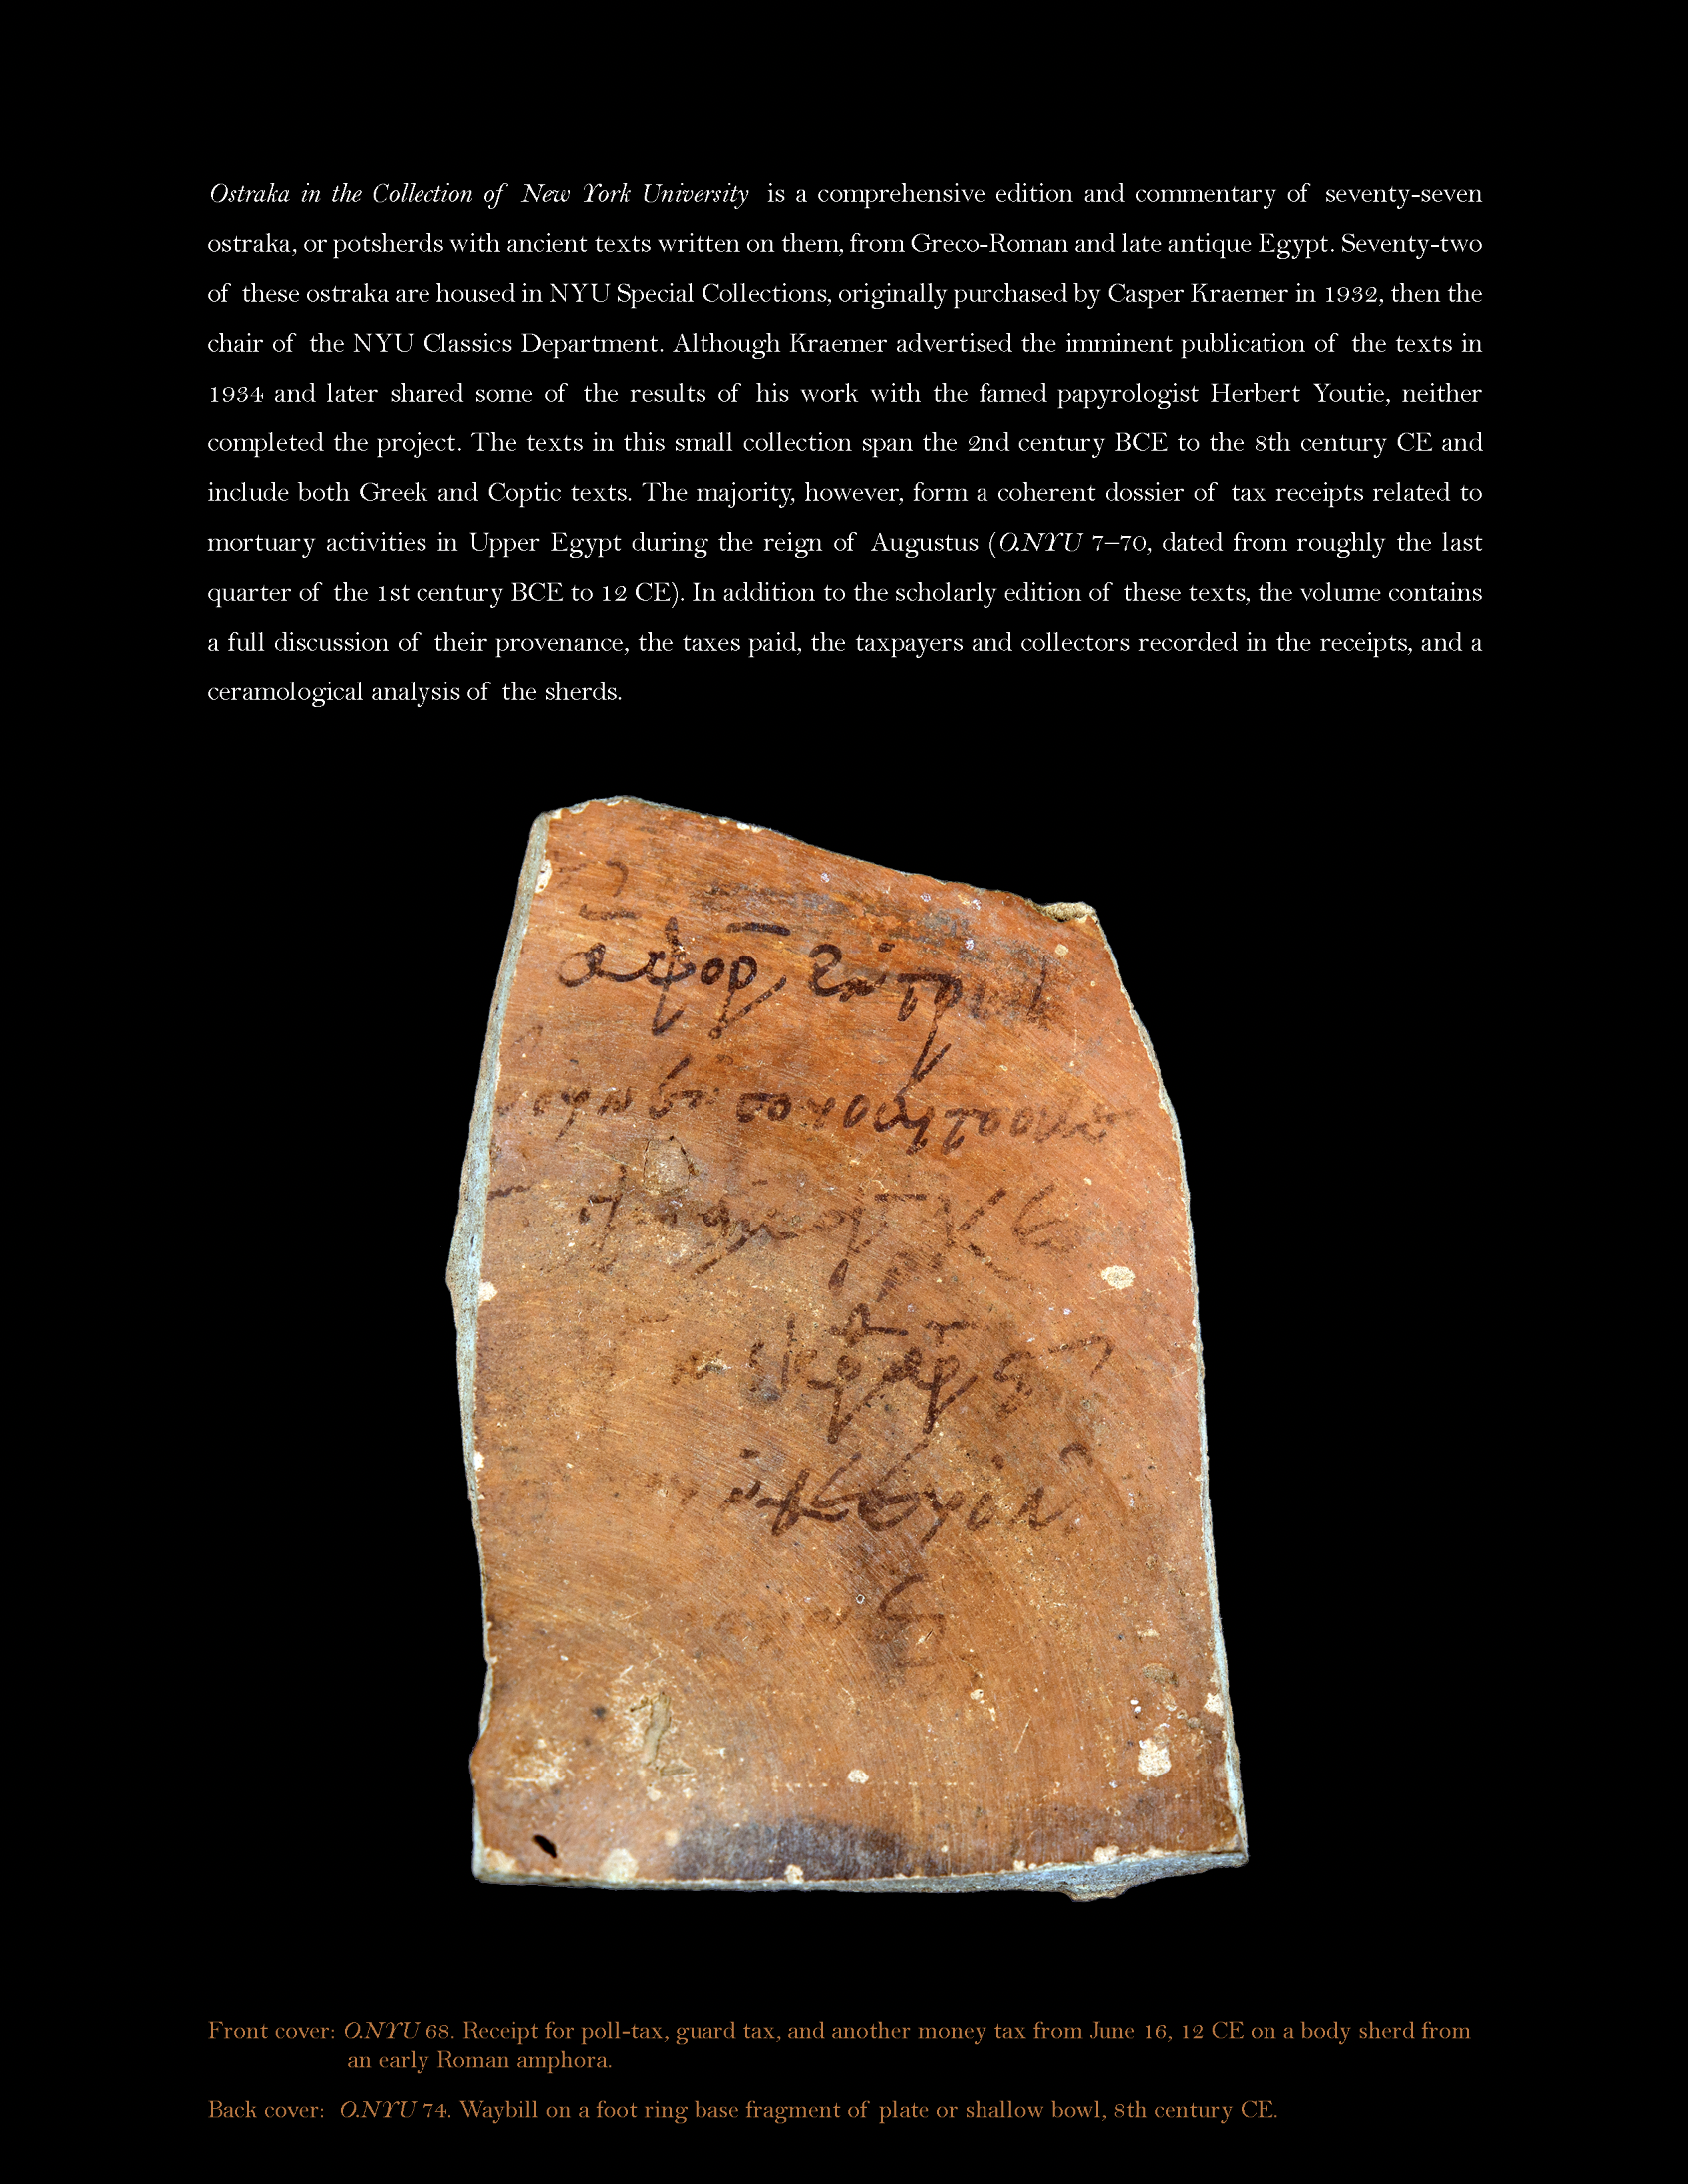 Ostraka in the Collection of New York University is a comprehensive edition and commentary of seventy-seven
ostraka, or potsherds with ancient texts written on them, from Greco-Roman and late antique Egypt. Seventy-two
of these ostraka are housed in NYU Special Collections, originally purchased by Casper Kraemer in 1932, then the
chair of the NYU Classics Department. Although Kraemer advertised the imminent publication of the texts in
1934 and later shared some of the results of his work with the famed papyrologist Herbert Youtie, neither
completed the project. The texts in this small collection span the 2nd century BCE to the 8th century CE and
include both Greek and Coptic texts. The majority, however, form a coherent dossier of tax receipts related to
mortuary activities in Upper Egypt during the reign of Augustus (O.NYU 7–70, dated from roughly the last
quarter of the 1st century BCE to 12 CE). In addition to the scholarly edition of these texts, the volume contains
a full discussion of their provenance, the taxes paid, the taxpayers and collectors recorded in the receipts, and a
ceramological analysis of the sherds.
Front cover: O.NYU 68. Receipt for poll-tax, guard tax, and another money tax from June 16, 12 CE on a body sherd from
an early Roman amphora.
Back cover: O.NYU 74. Waybill on a foot ring base fragment of plate or shallow bowl, 8th century CE.